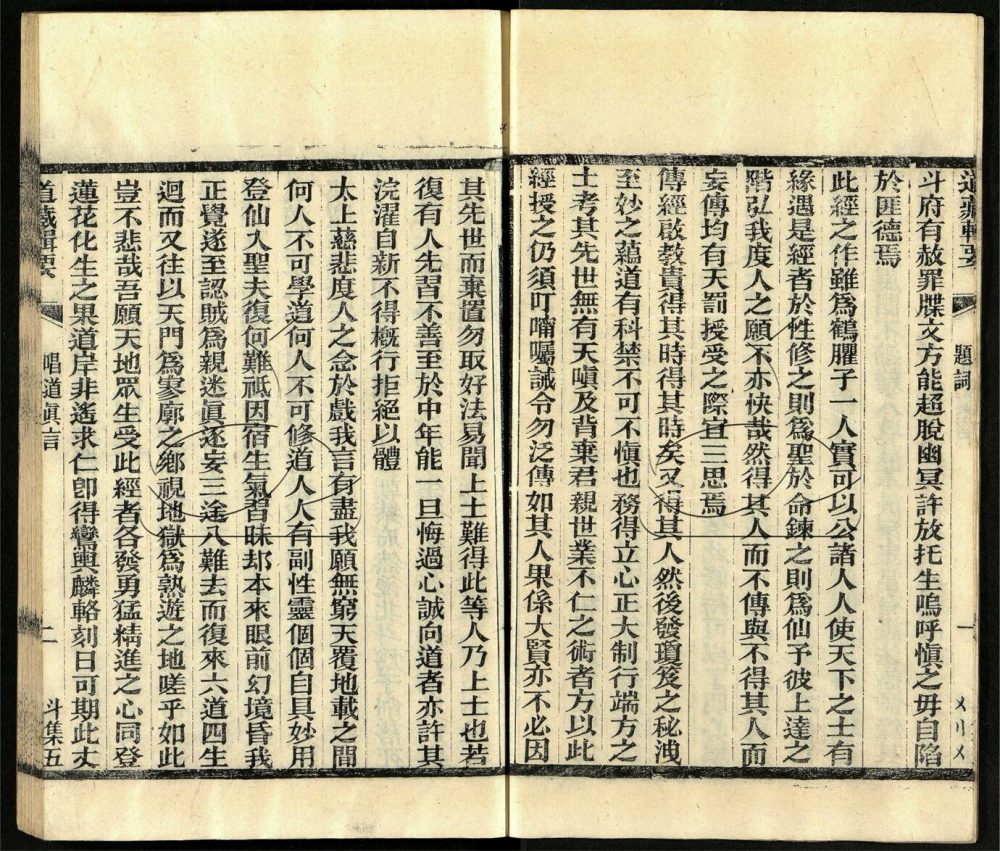 道藏輯要 題詞 一 〤〢〤
斗府有赦罪牒文方能超脫幽冥許放托生嗚呼愼之毋自陷
於匪德焉
此經之作雖爲鶴臞子一人實可以公諸人人使天下之士有
緣遇是經者於性修之則爲聖於命鍊之則爲仙予彼上達之
階弘我度人之願不亦快哉然得其人而不傳與不得其人而
妄傳均有天罰授受之際宜三思焉
傳經啟教貴得其時得其時矣又得其人然後發瓊笈之秘洩
至妙之蘊道有科禁不可不愼也務得立心正大制行端方之
士考其先世無有天嗔及背棄君親世業不仁之術者方以此
經授之仍須叮嚀囑誡令勿泛傳如其人果係大賢亦不必因
其先世而棄置勿取好法易聞上士難得此等人乃上士也若
復有人先習不善至於中年能一旦悔過心誠向道者亦許其
浣濯自新不得槪行拒絕以體
太上慈悲度人之念於戲我言有盡我願無窮天覆地載之間
何人不可學道何人不可修道人人有副性靈個個自具妙用
登仙入聖夫復何難祗因宿生氣習昧却本來眼前幻境昏我
正覺遂至認賊爲親迷眞逐妄三途八難去而復來六道四生
迴而又往以天門爲寥廓之鄉視地獄爲熟遊之地嗟乎如此
豈不悲哉吾願天地眾生受此經者各發勇猛精進之心同登
蓮花化生之果道岸非遙求仁卽得鸞輿麟輅刻日可期此丈
道藏輯要 唱道眞言 二 斗集五